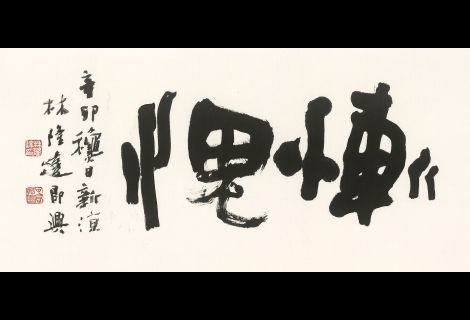 慚愧
辛卯龝日新涼
林隆達即興